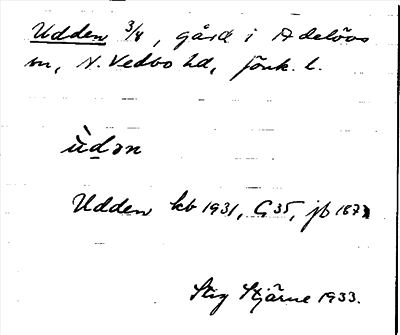 Udden 3/8, gård i Adelövs
sn, N. Vedbo hd, Jönk. l.
ùdən
Udden kb 1931, G35, jb 1877
Stig Stjärne 1933.